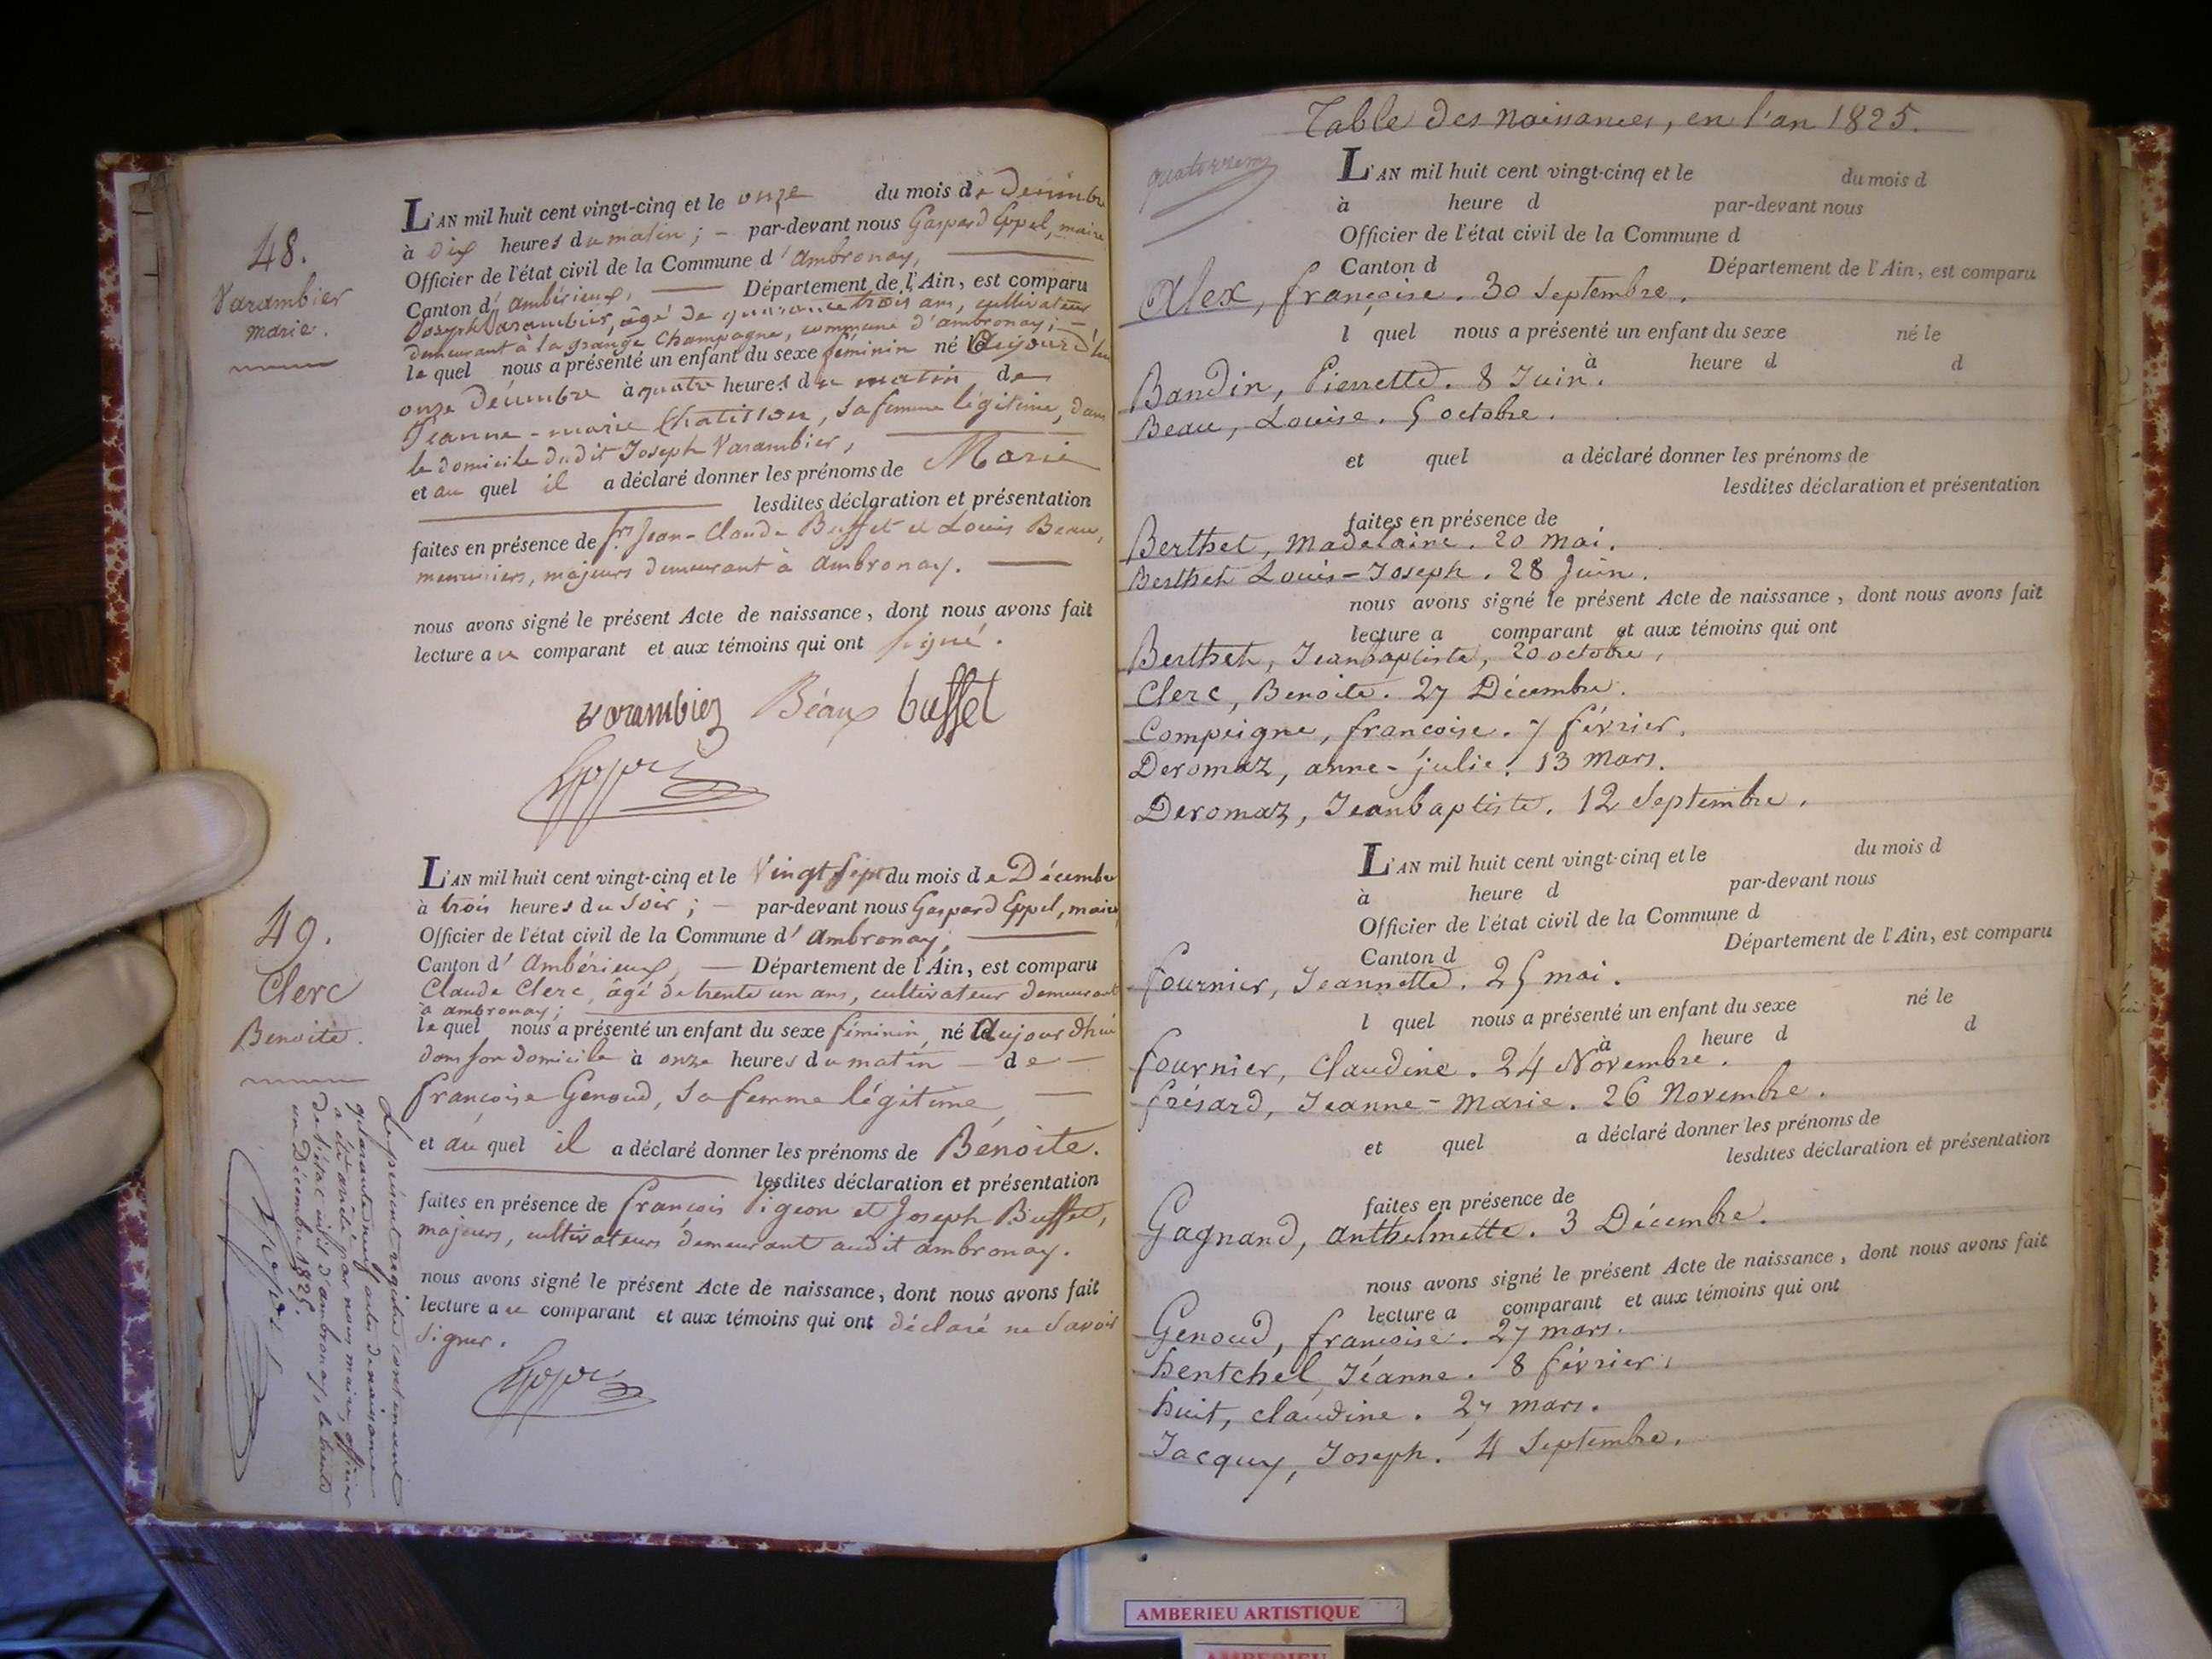 48.
Varambier
marie.
L'AN mil huit cent vingt-cinq et le onze du mois de Décembre
à dix heures du matin ; – par-devant nous Gaspard Eppel, maire
Officier de l'état civil de la Commune d'ambronay,
Canton d'ambérieux, Département de l'Ain, est comparu
Joseph Varambier, âgé de quarante trois ans, cultivateur
demeurant à la grange Champagne, commune d'ambronay ; –
lequel nous a présenté un enfant du sexe féminin né le aujourd'hui
onze décembre à quatre heures du matin de
Jeanne-marie Chatillon, sa femme légitime, dans
le domicile dudit Joseph Varambier,
et au quel il a déclaré donner les prénoms de Marie
lesdites déclaration et présentation
faites en présence de Jean-Claude Buffet et Louis Beau,
menuisiers, majeurs demeurant à ambronay.
nous avons signé le présent Acte de naissance, dont nous avons fait
lecture au comparant et aux témoins qui ont signé.
varambier Béaux buffet
49.
Clerc
Benoite.
L'AN mil huit cent vingt-cinq et le vingt sept du mois de Décembre
à trois heures du soir ; – par-devant nous Gaspard Eppel, maire
Officier de l'état civil de la Commune d'ambronay,
Canton d'ambérieux, — Département de l'Ain, est comparu
Claude Clerc, âgé de trente un ans, cultivateur demeurant
à ambronay ;
lequel nous a présenté un enfant du sexe féminin, né le aujourd'hui
dans son domicile à onze heures du matin — de —
françoise Genoud, sa femme légitime
et au quel il a déclaré donner les prénoms de Bénoite.
lesdites déclaration et présentation
faites en présence de françois Pigeon et Joseph Buffet,
majeurs, cultivateurs demeurant audit ambronay.
nous avons signé le présent Acte de naissance, dont nous avons fait
lecture au comparant et aux témoins qui ont déclaré ne savoir
signer.
Le présent registre contenant
quarante neuf actes de naissance
a été arrêté par nous maire, officier
de l'état civil d'ambronay, le trente
un Décembre 1825.
Table des naissances, en l'an 1825.
L'AN mil huit cent vingt-cinq et le du mois d
à heure d par-devant nous
Officier de l'état civil de la Commune d
Canton d Département de l'Ain, est comparu
Alex, françoise. 30 Septembre.
l quel nous a présenté un enfant du sexe né le
à heure d d
Baudin, Pierrette. 8 Juin.
Beau, Louise. 5 octobre.
et quel a déclaré donner les prénoms de
lesdites déclaration et présentation
faites en présence de
Berthet, Madelaine. 20 mai.
Berthet Louis-Joseph. 28 Juin.
nous avons signé le présent Acte de naissance, dont nous avons fait
lecture a comparant et aux témoins qui ont
Berthet, Jeanbaptiste, 20 octobre,
Clerc, Benoite. 27 Décembre.
Compeigne, françoise. 7 février.
Deromaz, anne-julie. 13 Mars.
Deromaz, Jeanbaptiste. 12 Septembre.
L'AN mil huit cent vingt-cinq et le du mois d
à heure d par-devant nous
Officier de l'état civil de la Commune d
Canton d Département de l'Ain, est comparu
fournier, Jeannette. 25 mai.
l quel nous a présenté un enfant du sexe né le
à heure d d
fournier, Claudine. 24 Novembre.
frésard, Jeanne-Marie. 26 Novembre.
et quel a déclaré donner les prénoms de
lesdites déclaration et présentation
faites en présence de
Gagnand, anthelmette. 3 Décembre.
nous avons signé le présent Acte de naissance, dont nous avons fait
lecture a comparant et aux témoins qui ont
Genoud, françoise. 27 mars.
hentchel, Jéanne. 8 février.
huit, claudine. 27 mars.
Jacquy, Joseph. 4 Septembre.
AMBERIEU ARTISTIQUE
AMBERIEU